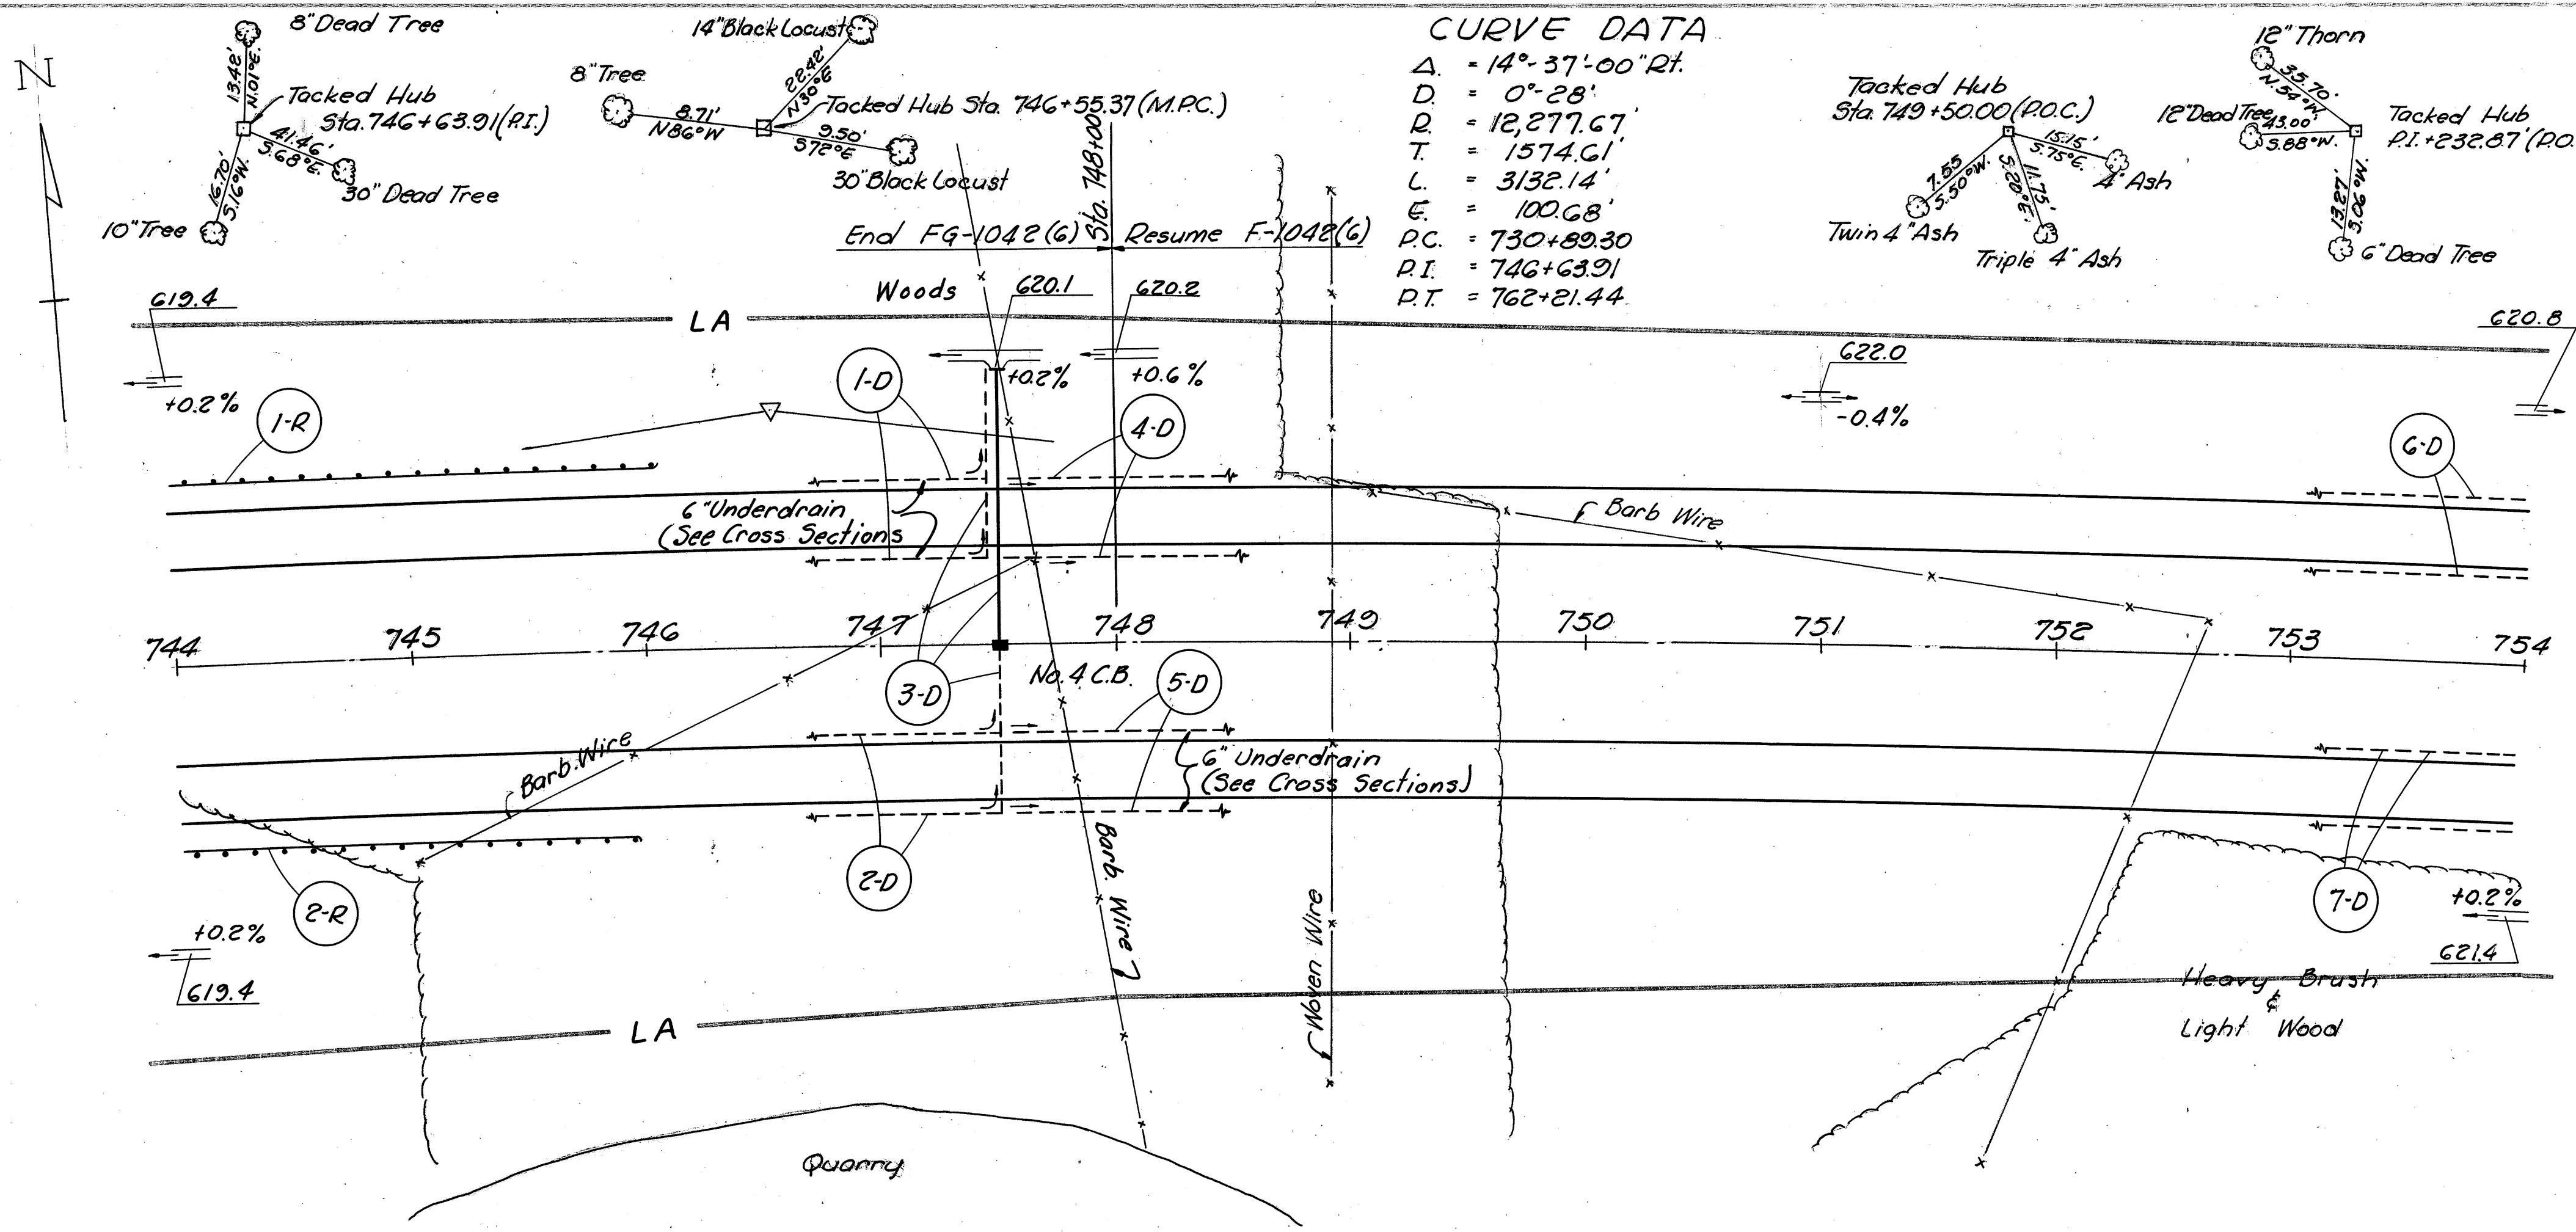 N
8" Dead Tree
13.42'
N.01°E.
Tacked Hub
Sta. 746+63.91 (P.I.)
41.46'
S.68°E.
30" Dead Tree
16.70'
S.16°W.
10" Tree
14" Black Locust
22.42'
N30°E
8" Tree
8.71'
N86°W
Tacked Hub Sta. 746+55.37 (M.P.C.)
9.50'
S72°E
30" Black Locust
CURVE DATA
Δ. = 14°-37'-00" Rt.
D. = 0°-28'
R. = 12,277.67'
T. = 1574.61'
L. = 3132.14'
E. = 100.68'
P.C. = 730+89.30
P.I. = 746+63.91
P.T. = 762+21.44
Tacked Hub
Sta. 749+50.00 (P.O.C.)
15.15'
S.75°E.
4" Ash
7.55
S.50°W.
Twin 4" Ash
11.75'
S.20°E.
Triple 4" Ash
12" Thorn
35.70'
N.54°W
12" Dead Tree
43.00'
S.88°W.
Tacked Hub
P.I.+232.87' (P.O.
13.27'
S.06°W.
6" Dead Tree
Sta. 748+00
End FG-1042 (6)
Resume F-1042(6)
Woods
619.4
620.1
620.2
620.8
LA
622.0
+0.2%
+0.2%
+0.6%
-0.4%
1-R
1-D
4-D
6-D
6" Underdrain
(See Cross Sections
Barb Wire
744 745 746 747 748 749 750 751 752 753 754
3-D
No. 4 C.B.
5-D
Barb. Wire
6" Underdrain
(See Cross Sections)
2-R
2-D
Barb. Wire
Woven Wire
7-D
+0.2%
+0.2%
619.4
621.4
LA
Heavy Brush
&
Light Wood
Quarry